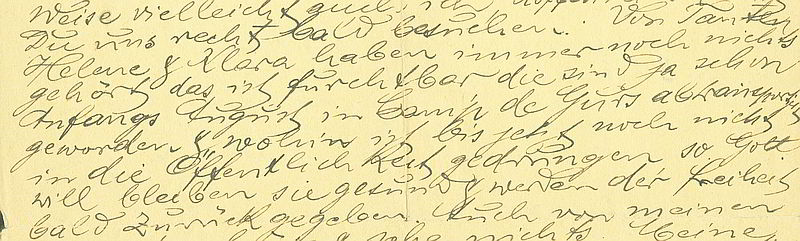 Weise vielleicht auch ich hoffen
Du uns recht bald besuchen. Von Tanten
Helene & Klara haben immer noch nichts
gehört das ist furchtbar die sind ja schon
Anfangs August in Camp de Gurs abtransportiert
geworden & wohin ist bis jetzt noch nicht
in die Öffentlichkeit gedrungen, so Gott
will bleiben sie gesund & werden der Freiheit
bald zurückgegeben. Auch von meinen
nichts. Meine